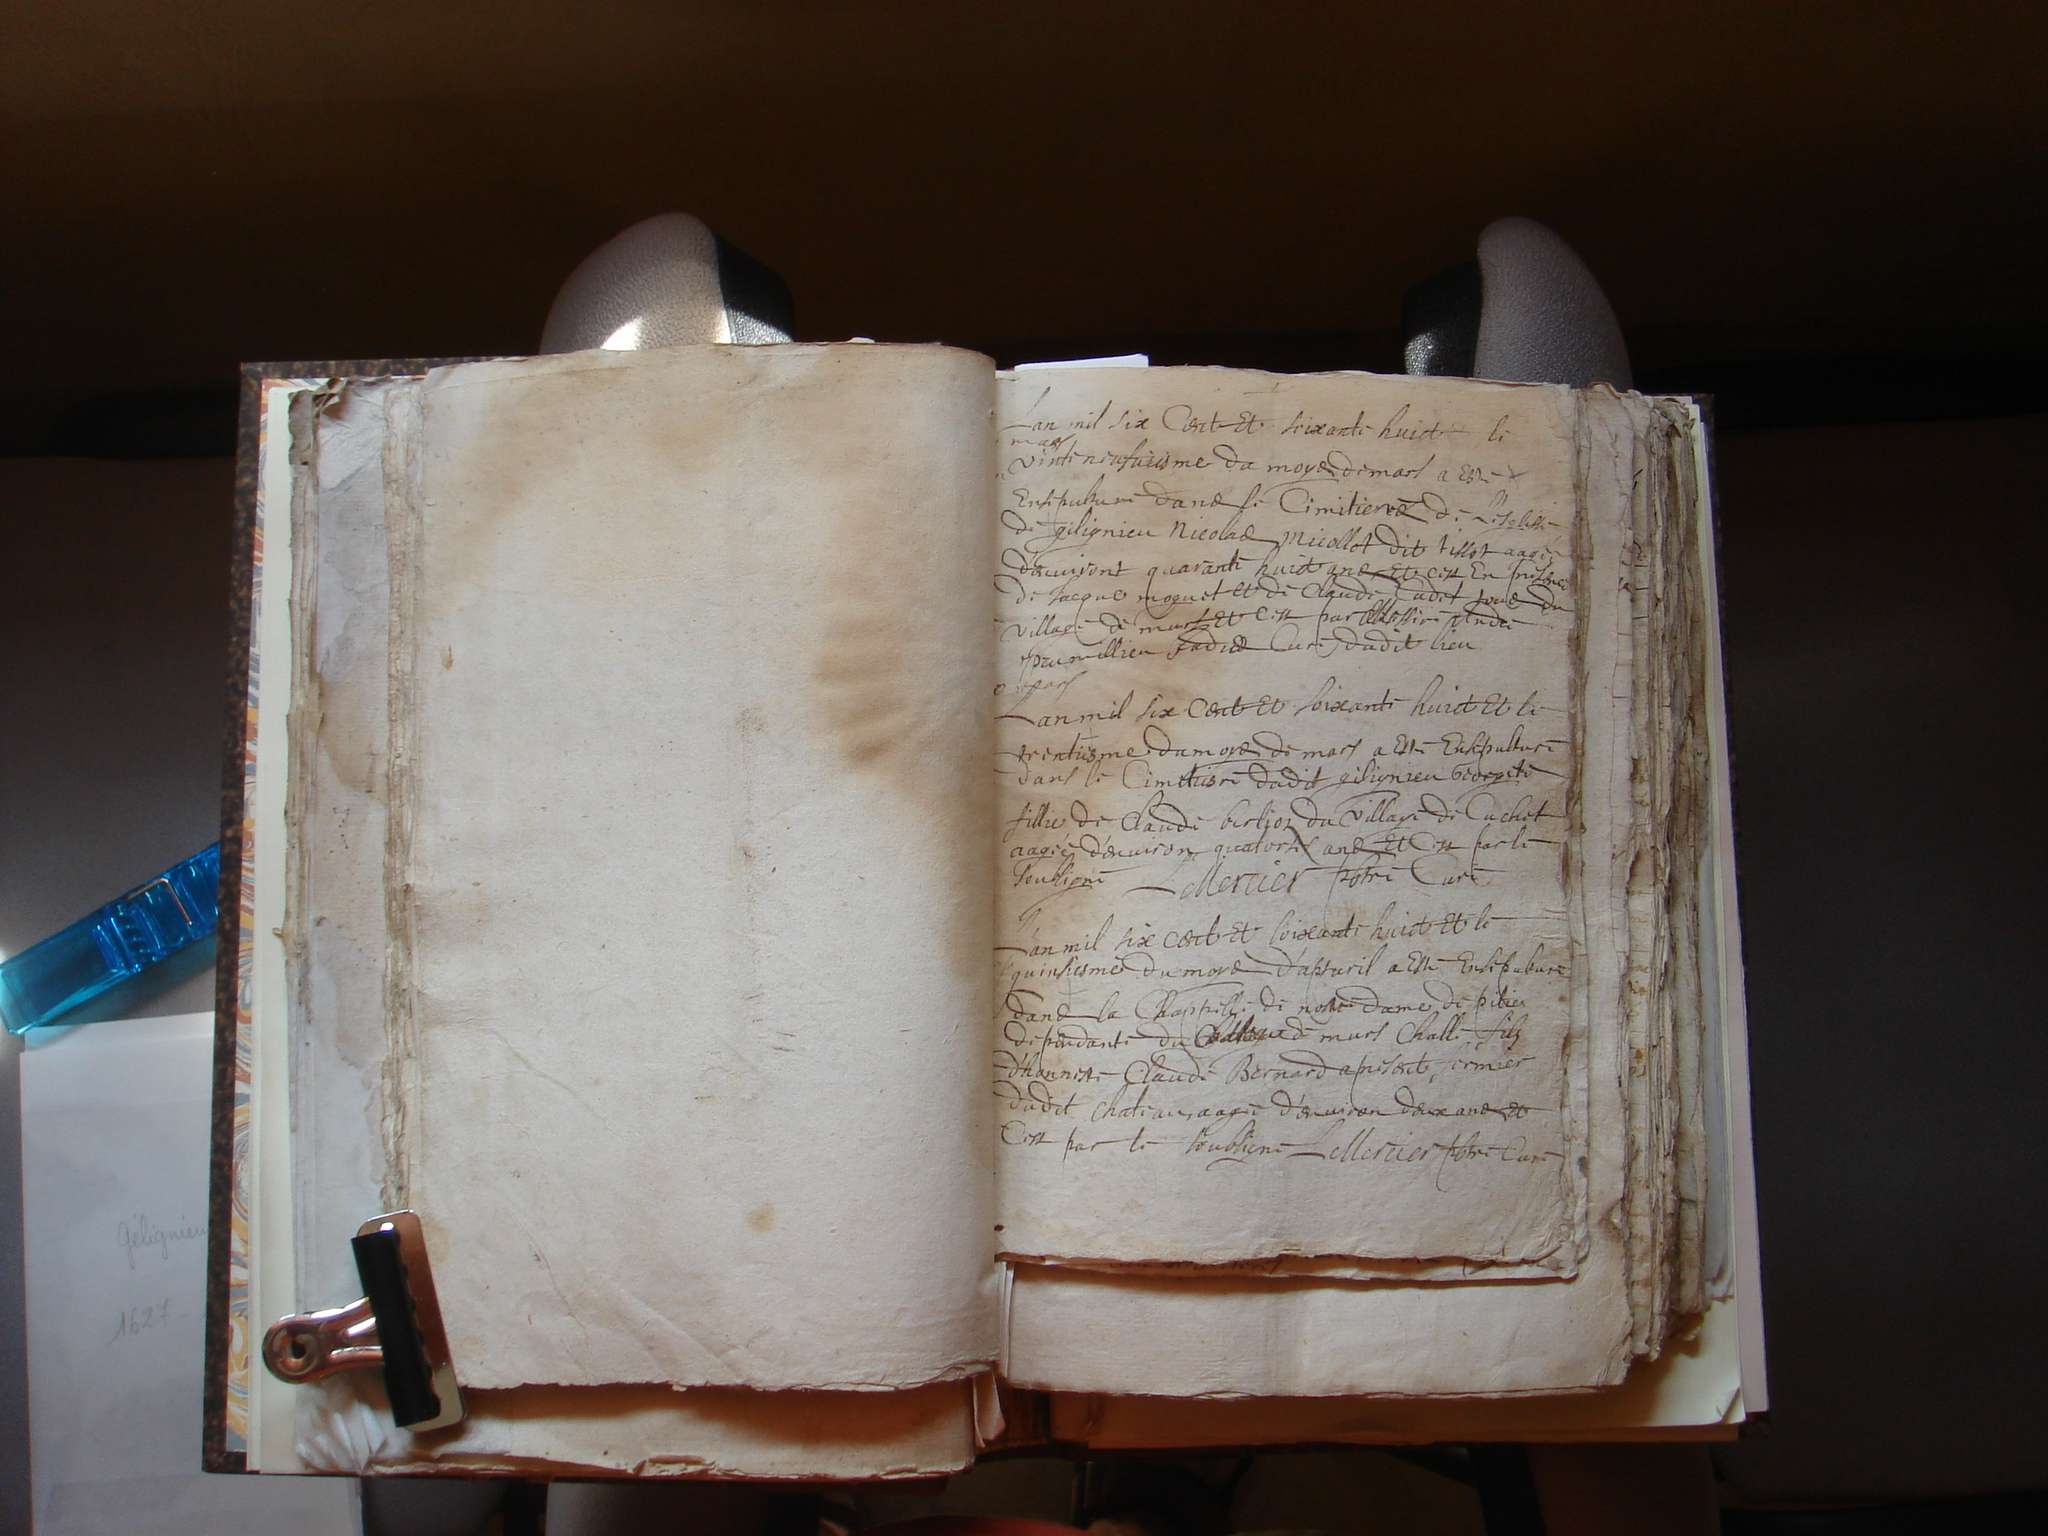 Lan mil six Cent Et soixante huict le
mars
vinteneufuiesme du moys de mars a este
Ensepulture dans le Cimitiere de Leglisse
de gilignieu Nicolas Micollot dit tillot aagé
d'enuiront quarante huict ans Et cest En presence
de Jacque moquet et de Claude Cadet tous du
village de murs Et cest par Messire Andre
prumillieu Curé dudit lieu
mars
Lan mil six Cent Et soixante huict Et le
trentiesme du moys de mars a Esté Ensepulture
dans le Cimitiere dudit gilignieu Georgete
fillie de Claude berlioz du Village de Cuchet
aagée d'enuiron quatorse ans Et Cest par le
soubsigné LeMercier pbtre Curé
Lan mil six cent Et soixante huict Et le
quinsiesme du moys d'apuril a Esté Ensepulture
dans la Chappelle de nostre Dame de pitié
dependante du Chateau de murs Challe fils
d'honneste Claude Bernard apresent fermier
dudit chateau aagé d'enuiron deux ans Et
Cest par le soubsigné LeMercier pbtre Curé
Gélignieu
1627 -